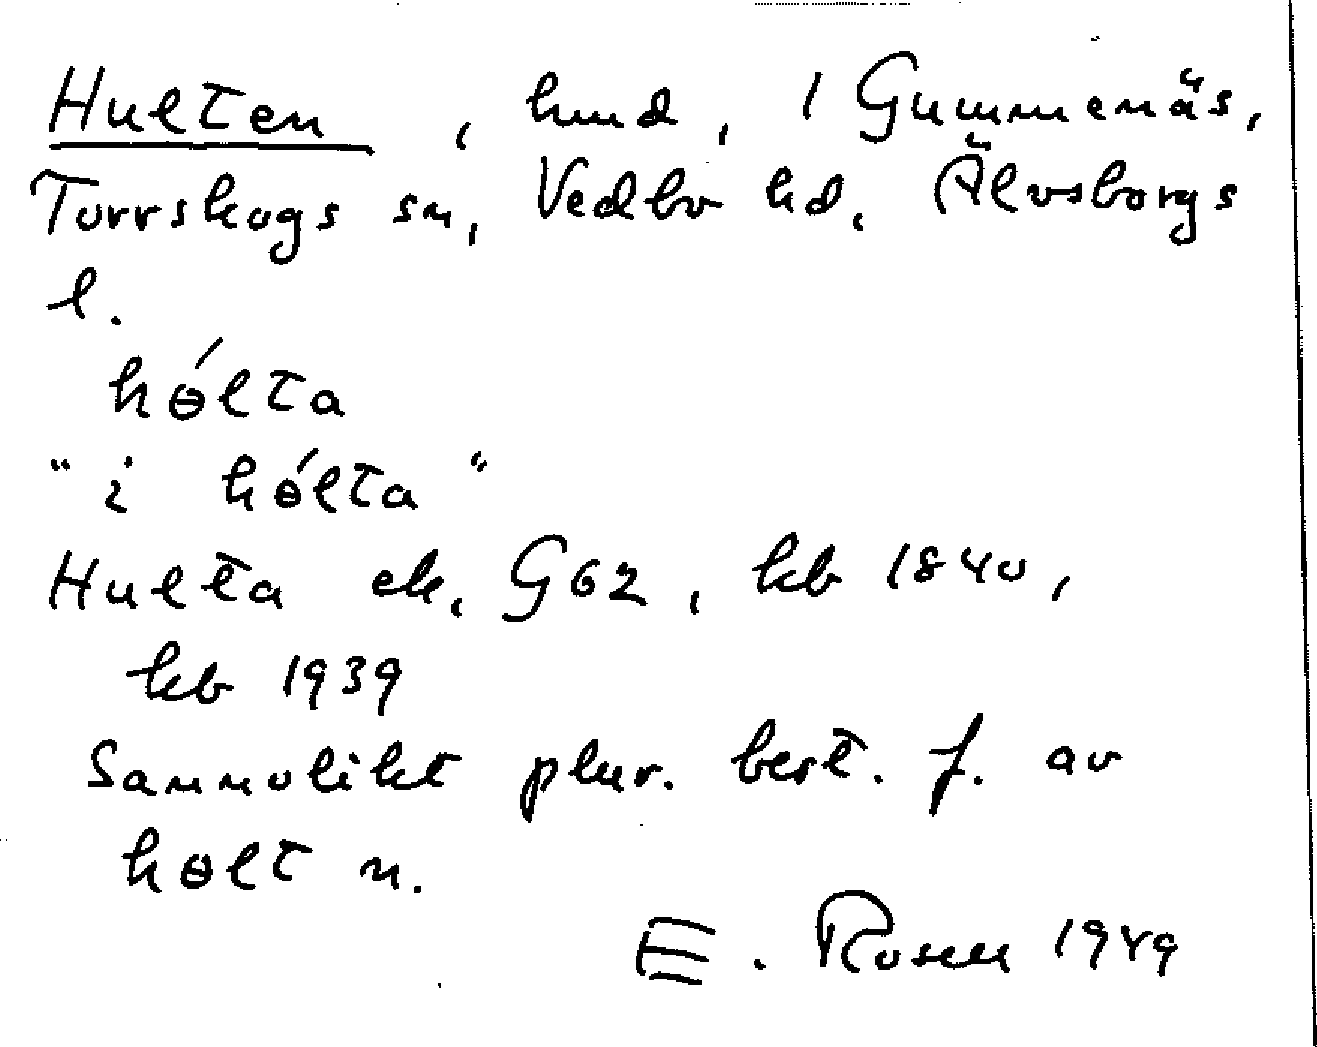 Hulten, hmd, 1 Gummenäs,
Torrskogs sn, Vedbo hd, Älvsborgs
l.
hɵ́lta
"i hɵ́lta"
Hulta ek, G62, kb 1840,
kb 1939
Sannolikt plur. best. f. av
hɵlt n.
E. Rosen 1949